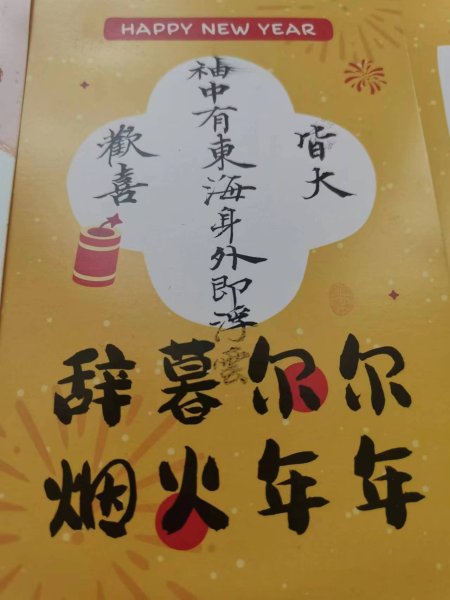 HAPPY NEW YEAR
皆大
袖中有東海身外即浮雲
歡喜
辞暮尔尔
烟火年年